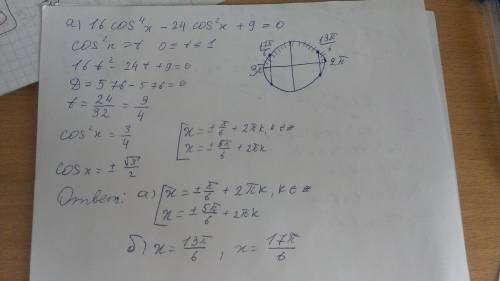 а) 16 cos⁴x − 24 cos²x + 9 = 0
cos²x = t   0 ≤ t ≤ 1
16t² − 24t + 9 = 0
D = 576 − 576 = 0
t = 24/32 = 9/4
cos²x = 3/4
cos x = ± √3/2
17π/6   13π/6
3π   2π
[ x = ± π/6 + 2πk, k∈z
x = ± 5π/6 + 2πk
Ответ: а) [ x = ± π/6 + 2πk, k∈z
x = ± 5π/6 + 2πk
б) x = 13π/6 , x = 17π/6